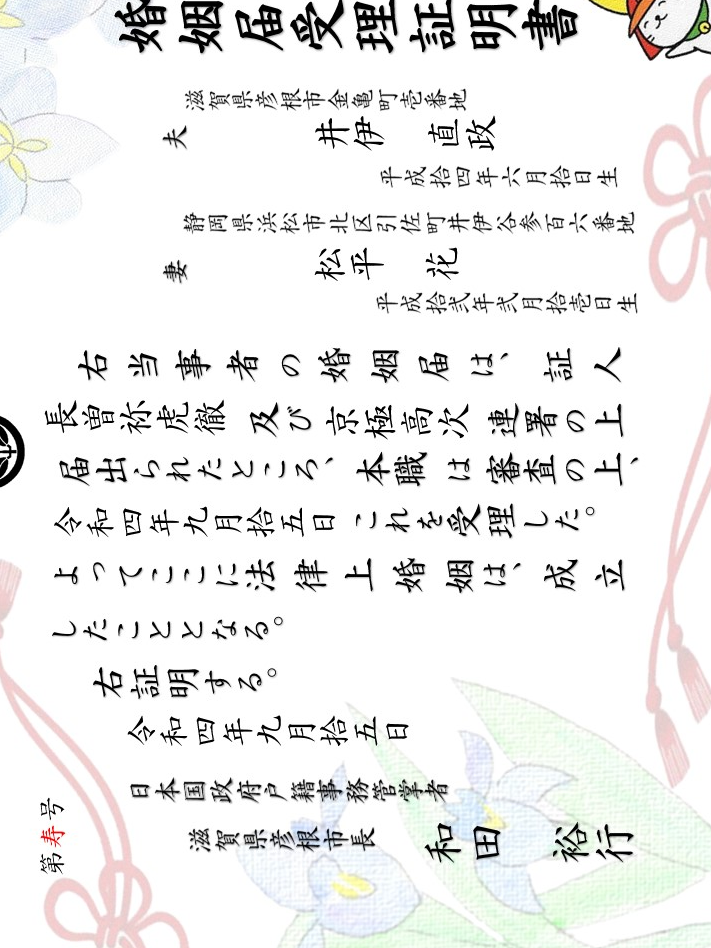 婚姻届受理証明書
滋賀県彦根市金亀町壱番地
夫 井伊 直政
平成拾四年六月拾日生
静岡県浜松市北区引佐町井伊谷参百六番地
妻 松平 花
平成拾弐年弐月拾壱日生
右当事者の婚姻届は、証人
長曽祢虎徹 及び 京極高次 連署の上
届出られたところ、本職は審査の上、
令和四年九月拾五日 これを受理した。
よってここに法律上婚姻は、成立
したこととなる。
右証明する。
令和四年九月拾五日
日本国政府戸籍事務管掌者
滋賀県彦根市長 和田 裕行
第寿号